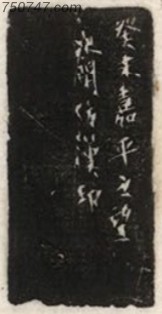 750747.com
癸未嘉平立堅
冰閒仿漢印